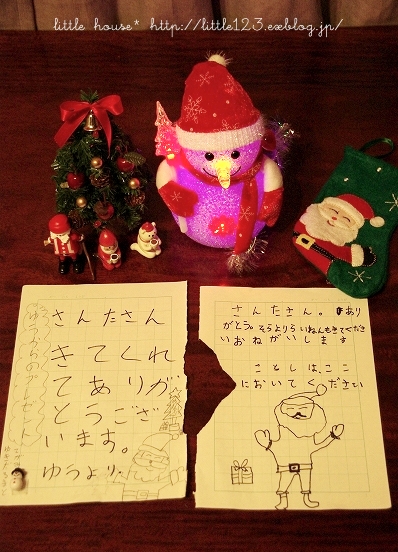 little house* http://little123.exblog.jp/
さんたさん
きてくれ
てありが
とうござ
います。
ゆうより.
さんたさん。あり
がとう。そらよりらいねんもきてくださ
いおねがいします
ことしは、ここ
においてください